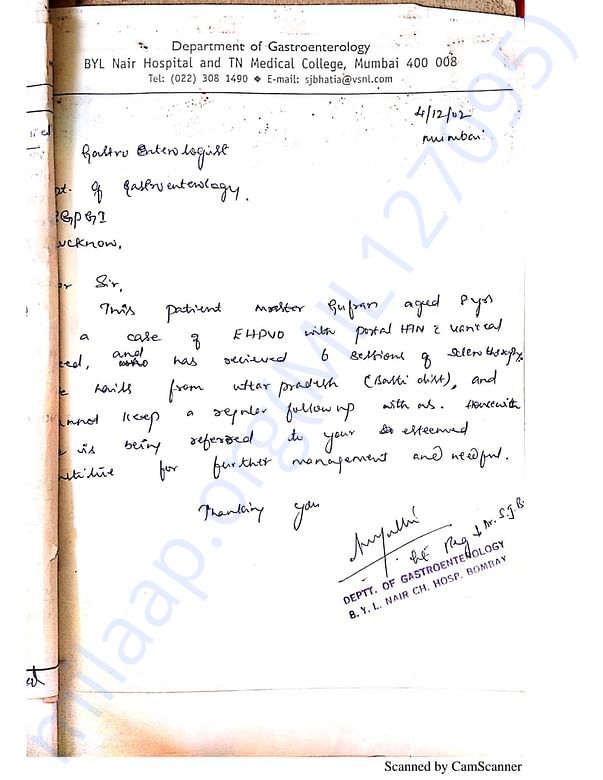 Department of Gastroenterology
BYL Nair Hospital and TN Medical College, Mumbai 400 008
Tel: (022) 308 1490 ❖ E-mail: sjbhatia@vsnl.com
4/12/02
Mumbai.
Gastro Enterologist
pt. of Gastroenterology,
GPGI
ucknow,
r Sir,
This patient master Gufran aged 8 yrs
a case of EHPVO with portal HTN c variceal
eed, and has recieved 6 sessions of sclerotherapy.
e hails from uttar pradesh (Basti dist), and
nnot keep a regular follow up with us. Hencewith
is being referred to your esteemed
nstitute for further management and needful.
Thanking you
Reg Dr. S.J.B.
DEPTT. OF GASTROENTEROLOGY
B. Y. L. NAIR CH. HOSP. BOMBAY
milaap.org(MIL127095)
Scanned by CamScanner